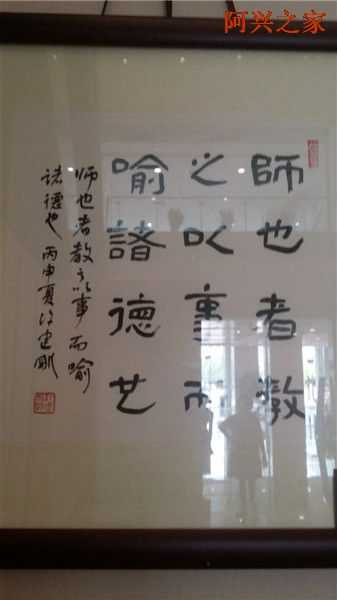 阿兴之家
師也者教
之以事而
喻諸德也
师也者教之以事而喻
诸德也 丙申夏 建剛